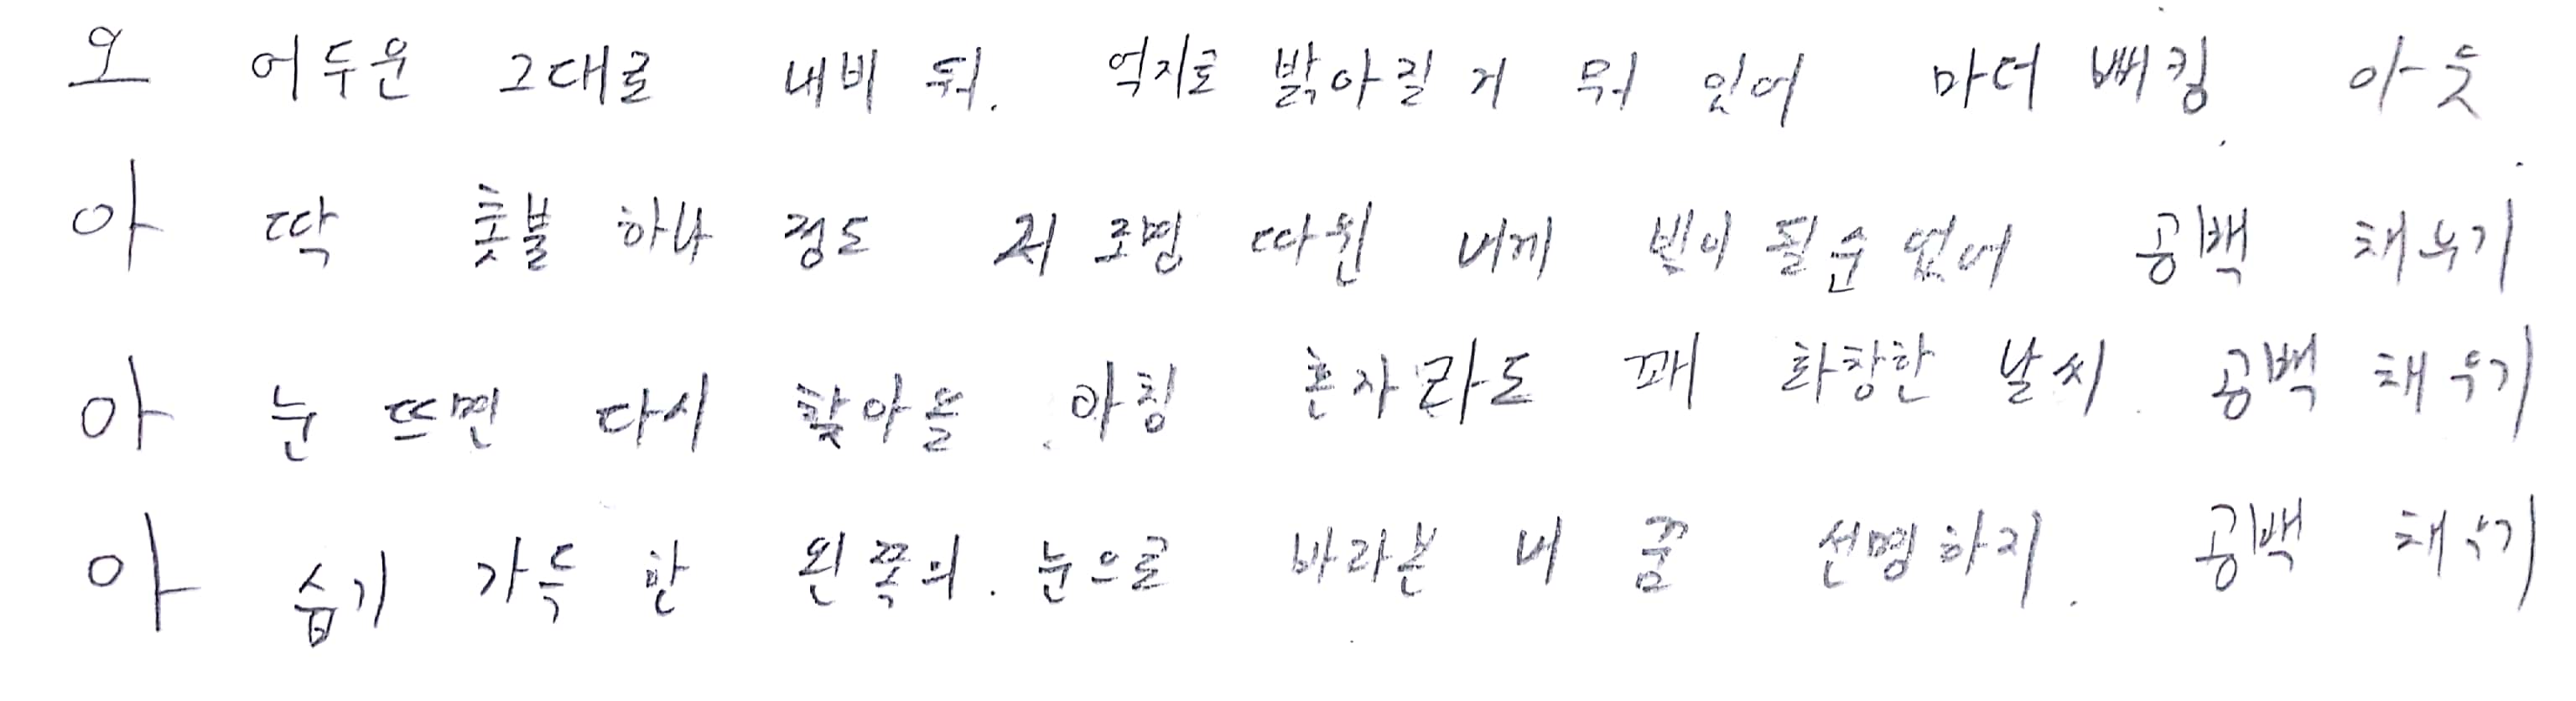 오 어두운 그대로 내비 둬. 억지로 밝아질 거 뭐 있어 마더 뻐킹 아웃
아 딱 촛불 하나 정도 저 조명 따윈 내게 빛이 될 순 없어 공백 채우기
아 눈 뜨면 다시 찾아올 아침 혼자라도 꽤 화창한 날씨 공백 채우기
아 습기 가득 한 왼쪽의 눈으로 바라본 내 꿈 선명하지. 공백 채우기